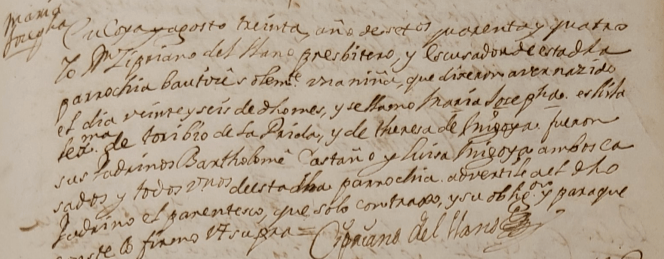 Maria
Josepha
En Coya y agosto treinta año de setos quarenta y quatro
Yo Dn Zipriano del Llano presbitero y Escusador de esta dha
parrochia bautize solemte una niña, que dixeron aver nazido
el dia veinte y seis de dho mes, y se llamo Maria Josepha. es hija
legma de toribio de la Prida, y de theresa de fueron
sus Padrinos Bartholome Castaño y Luisa ambos ca
sados y todos vnos de esta dha parrochia. advertile al dho
Padrino el parentesco, que solo contraxo, y su obligon y para que
conste lo firmo Vt supra =
Cipriano del Llano